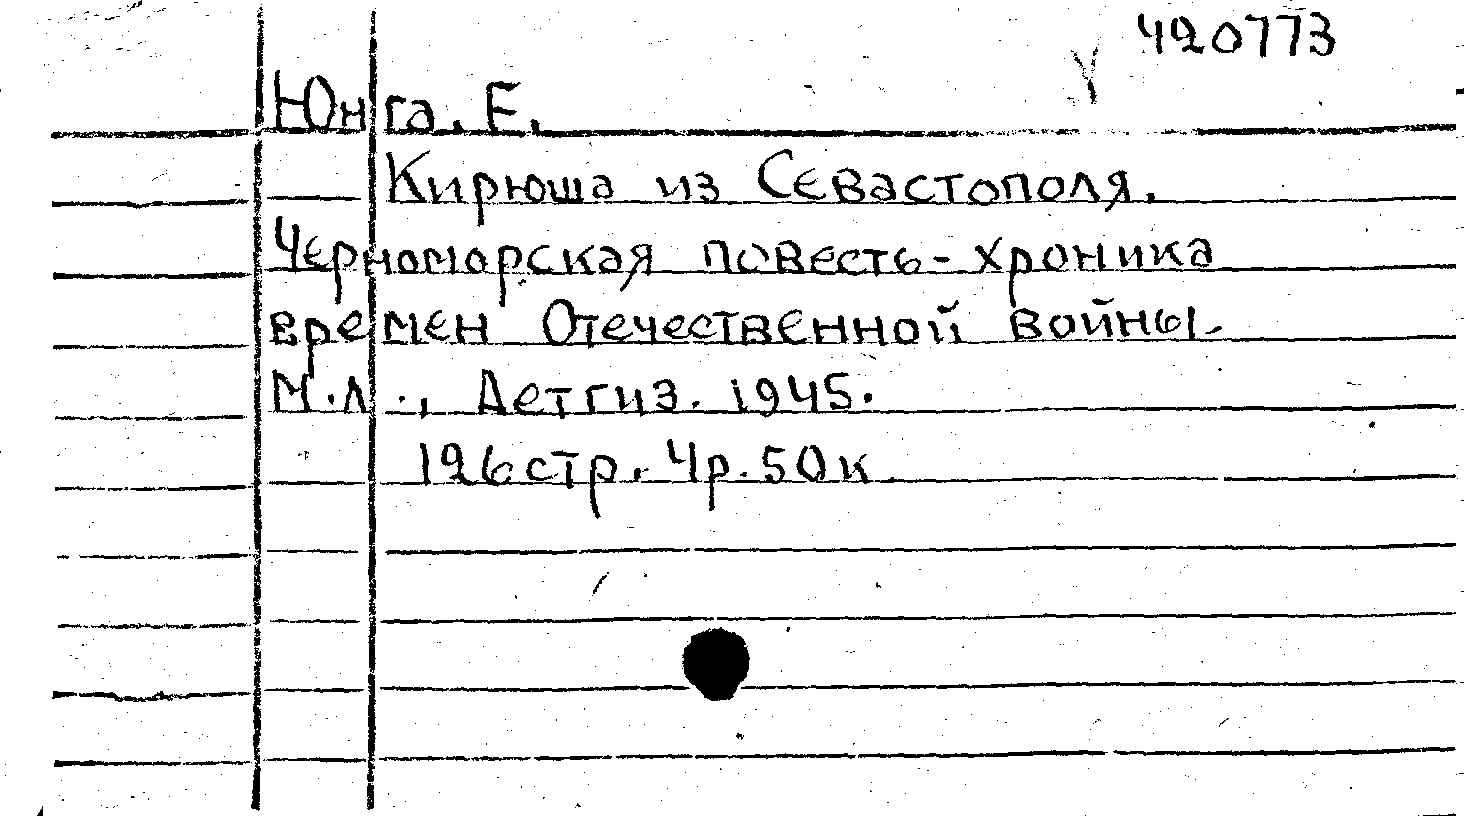 420773
Юнга, Е.
Кирюша из Севастополя.
Черноморская повесть-хроника
времен Отечественной войны.
М.Л., Детгиз. 1945.
126 стр. 4р. 50к.